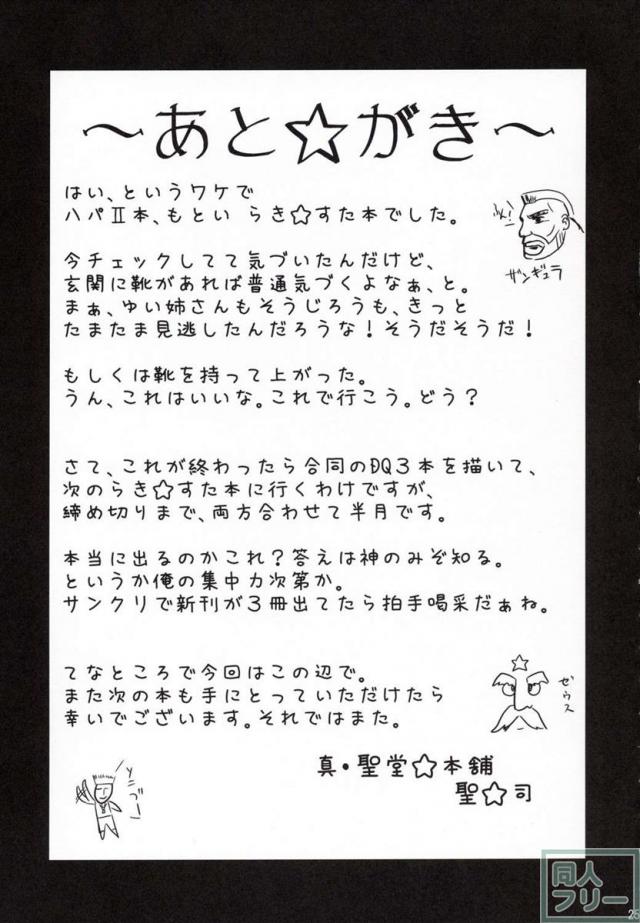 ～あと☆がき～
はい、というワケで
ハパⅡ本、もとい らき☆すた本でした。
ふん!
ザンギュラ
今チェックしてて気づいたんだけど、
玄関に靴があれば普通気づくよなぁ、と。
まぁ、ゆい姉さんもそうじろうも、きっと
たまたま見逃したんだろうな！そうだそうだ！
もしくは靴を持って上がった。
うん、これはいいな。これで行こう。どう？
さて、これが終わったら合同のDQ3本を描いて、
次のらき☆すた本に行くわけですが、
締め切りまで、両方合わせて半月です。
本当に出るのかこれ？答えは神のみぞ知る。
というか俺の集中力次第か。
サンクリで新刊が3冊出てたら拍手喝采だぁね。
てなところで今回はこの辺で。
また次の本も手にとっていただけたら
幸いでございます。それではまた。
ゼウス
真・聖堂☆本舗
聖☆司
同人
フリー